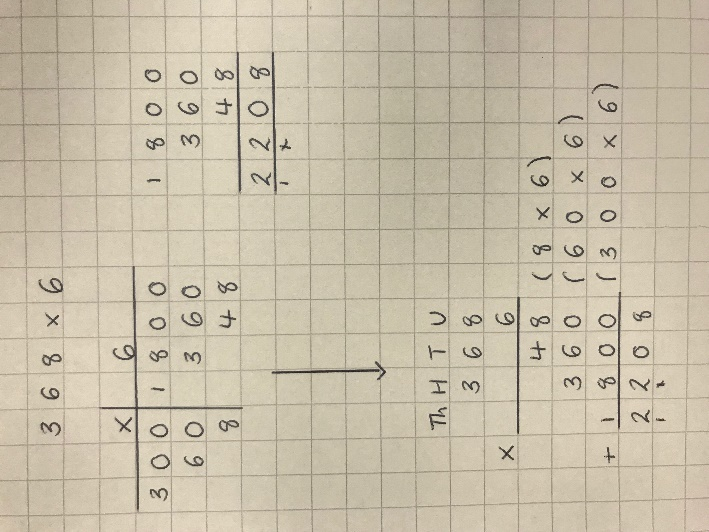 3 6 8 x 6
x 6
3 0 0 1 8 0 0
6 0 3 6 0
8 4 8
1 8 0 0
3 6 0
4 8
2 2 0 8
1 1
Th H T U
3 6 8
x 6
4 8 ( 8 x 6 )
3 6 0 ( 6 0 x 6 )
+ 1 8 0 0 ( 3 0 0 x 6 )
2 2 0 8
1 1